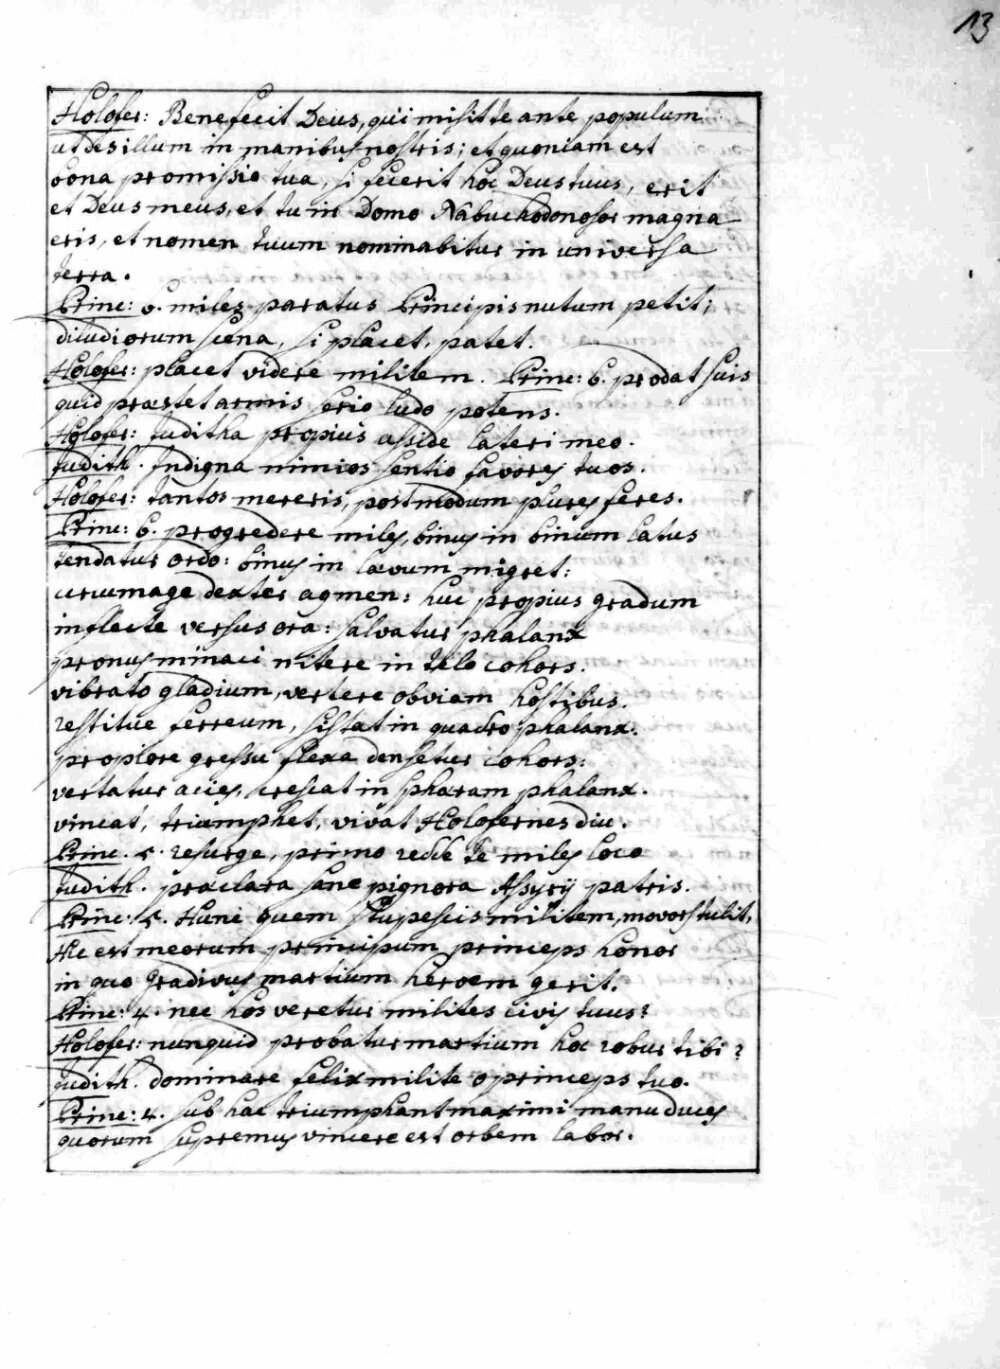 13
Holofer: Benefecit Deus, qui misit te ante populum
ut des illum in manibus nostris; et quoniam est
bona promissio tua, si fecerit hoc Deus tuus, erit
et Deus meus, et tu in Domo Nabuchodonosor magna
eris, et nomen tuum nominabitur in universa
terra.
Princ: 6. miles paratus Principis nutum petit;
diludiorum scena, si placet, patet.
Holofer: placet videre militem. Princ: 6. prodat suis
quid præstet armis serio ludo potens.
Holofer: Juditha propius asside lateri meo.
Judith. Indigna nimios sentio favores tuos.
Holofer: tantos mereris, postmodum plures feres.
Princ: 6. progredere miles, binus in binum latus
tendatur ordo: binus in lævum migret:
circumage dexter agmen: huc propius gradum
inflecte versus ora: salvatur phalanx
pronus minaci nitere in telo cohors.
vibrato gladium, vertere obviam hostibus.
restitue ferreum, sistat in quadro phalanx.
propiore gressu flexa densetur cohors:
vertatur acies, crescat in sphæram phalanx.
vincat, triumphet, vivat Holofernes diu.
Princ. 5. resurge, primo redde te miles loco
Judith. præclara sane pignora Assyrij patris.
Princ: 5. Hunc quem stupescis militem, movors tulit,
Hic est meorum principum princeps honor
in quo gradivus martium heroem gerit.
Princ: 4. nec hos veretur milites civis tuus?
Holofer: nunquid probatur martium hoc robur tibi?
Judith. dominare felix milite o princeps tuo.
Princ: 4. sub hac triumphant maximi manu duces
quorum supremus vincere est orbem labor.